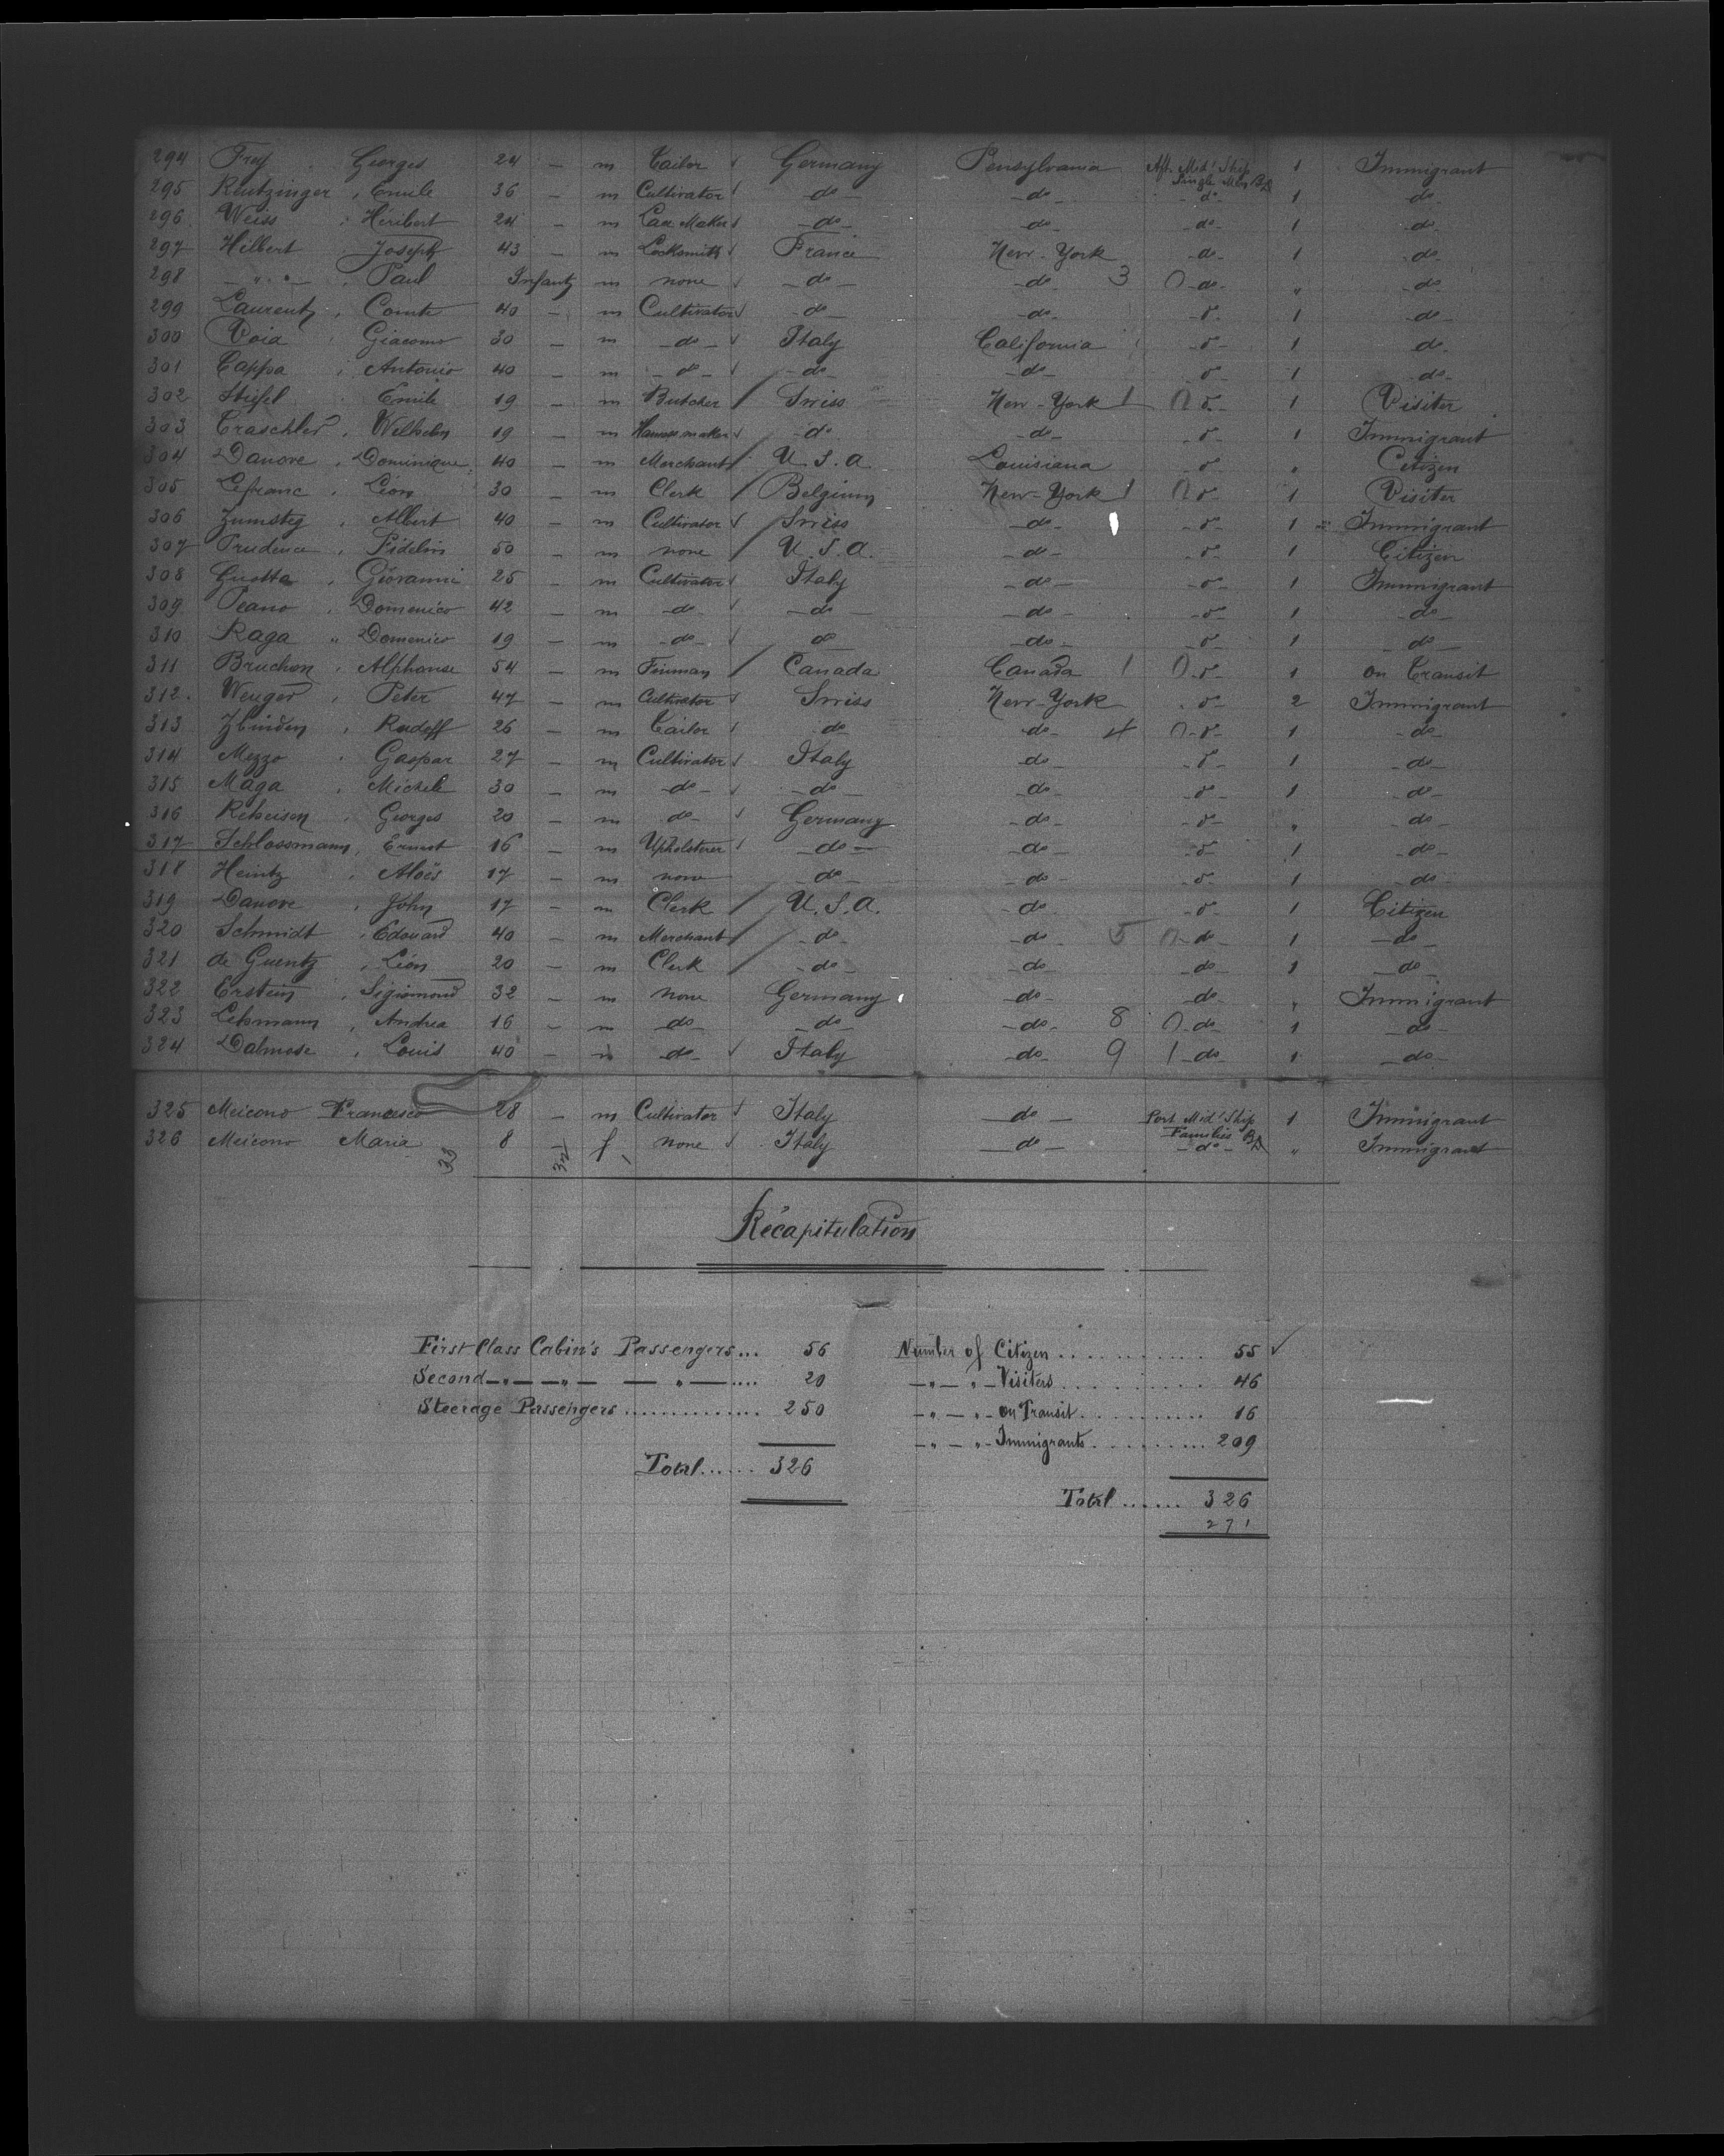 294 Frey Georges 24 — m Tailor Germany Pensylvania Aft. Mid! Ship Single Men BD 1 Immigrant
295 Rentzinger, Emile 36 — m Cultivator — do — — do — — do — 1 do
296 Weiss Heribert 24 — m Car Maker — do — — do — — do — 1 do
297 Hilbert Joseph 43 — m Locksmith France New-York — do — 1 do
298 — " " — Paul Infant m none — do — — do — 3 0 — do — " do
299 Laurent, Comte 40 — m Cultivator — do — — do — — d° — 1 — do —
300 Voia Giacomo 30 — m — do — Italy California — d° — 1 do
301 Cappa, Antonio 40 — m — do — — do — — do — — d° — 1 — do —
302 Stiefel Emile 19 — m Butcher Swiss New-York 1 0 d° — 1 Visiter
303 Traschler, Wilhelm 19 — m Harness maker — d° — do — — d° — 1 Immigrant
304 Danove, Dominique 40 — m Merchant U.S.a. Louisiana — d° — " Citizen
305 Lefranc, Léon 30 — m Clerk Belgium New-York 1 0 d° — 1 Visiter
306 Zumsteg, Albert 40 — m Cultivator Swiss — do — — d° — 1 Immigrant
307 Prudence, Fidelin 50 — m none U.S.a. — do — — d° — 1 Citizen
308 Giovanni 25 — m Cultivator Italy — do — — d° — 1 Immigrant
309 Peano, Domenico 42 — m — do — — do — — do — — d° — 1 — do —
310 Raga " Domenico 19 — m — do — do — do — — d° — 1 — do —
311 Bruchon, Alphonse 54 — m Canada Canada 1 0 — d° — 1 on Transit
312. Wenger, Peter 47 — m Cultivator Swiss New-York — d° — 2 Immigrant
313 Zbinden, Rudolf 26 — m Tailor do — do — 4 0 — d° — 1 — do —
314 Mezzo Gaspar 27 — m Cultivator Italy do — — d° — 1 — do —
315 Maga, Michele 30 — m — do — — do — — do — — d° — 1 — do —
316 Georges 20 — m — do — Germany — do — — d° — " — do —
317 Schlossmann, Ernest 16 — m Upholsterer — do — — do — — d° — 1 — do —
318 Heintz, Aloïs 17 — m none — do — — do — — d° — 1 — do —
319 Danove, John 17 — m Clerk U.S.a. — do — — d° — 1 Citizen
320 Schmidt, Edouard 40 — m Merchant — do — — do — 5 0 — do — 1 — do —
321 de Guentz, Léon 20 — m Clerk — do — — do — — do — 1 — do —
322 Erstein, Sigismond 32 — m none Germany — do — — do — " Immigrant
323 Lehmann, Andrea 16 — m — do — — do — — do — 8 0 — do — 1 — do —
324 Dalmose, Louis 40 — m — do — Italy — do — 9 1 — do — 1 — do —
325 Meicono Francesco 28 — m Cultivator Italy — do — Port Mid! Ship Families BD 1 Immigrant
326 Meicono Maria 8 — f none Italy — do — — d° — " Immigrant
33 32
Récapitulation
First Class Cabin's Passengers... 56 Number of Citizen ............ 55 ✓
Second — " — — " — — " — .... 20 — " — " — Visiters ............ 46
Steerage Passengers .............. 250 — " — " — on Transit ............ 16
— " — " — Immigrants ............ 209
Total...... 326
Total ...... 326
271